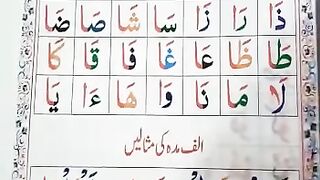 ذَا رَا زَا سَا شَا صَا ضَا
طَا ظَا عَا غَا فَا قَا کَا
لَا مَا نَا وَا هَا ءَا یَا
الف مدہ کی مثالیں